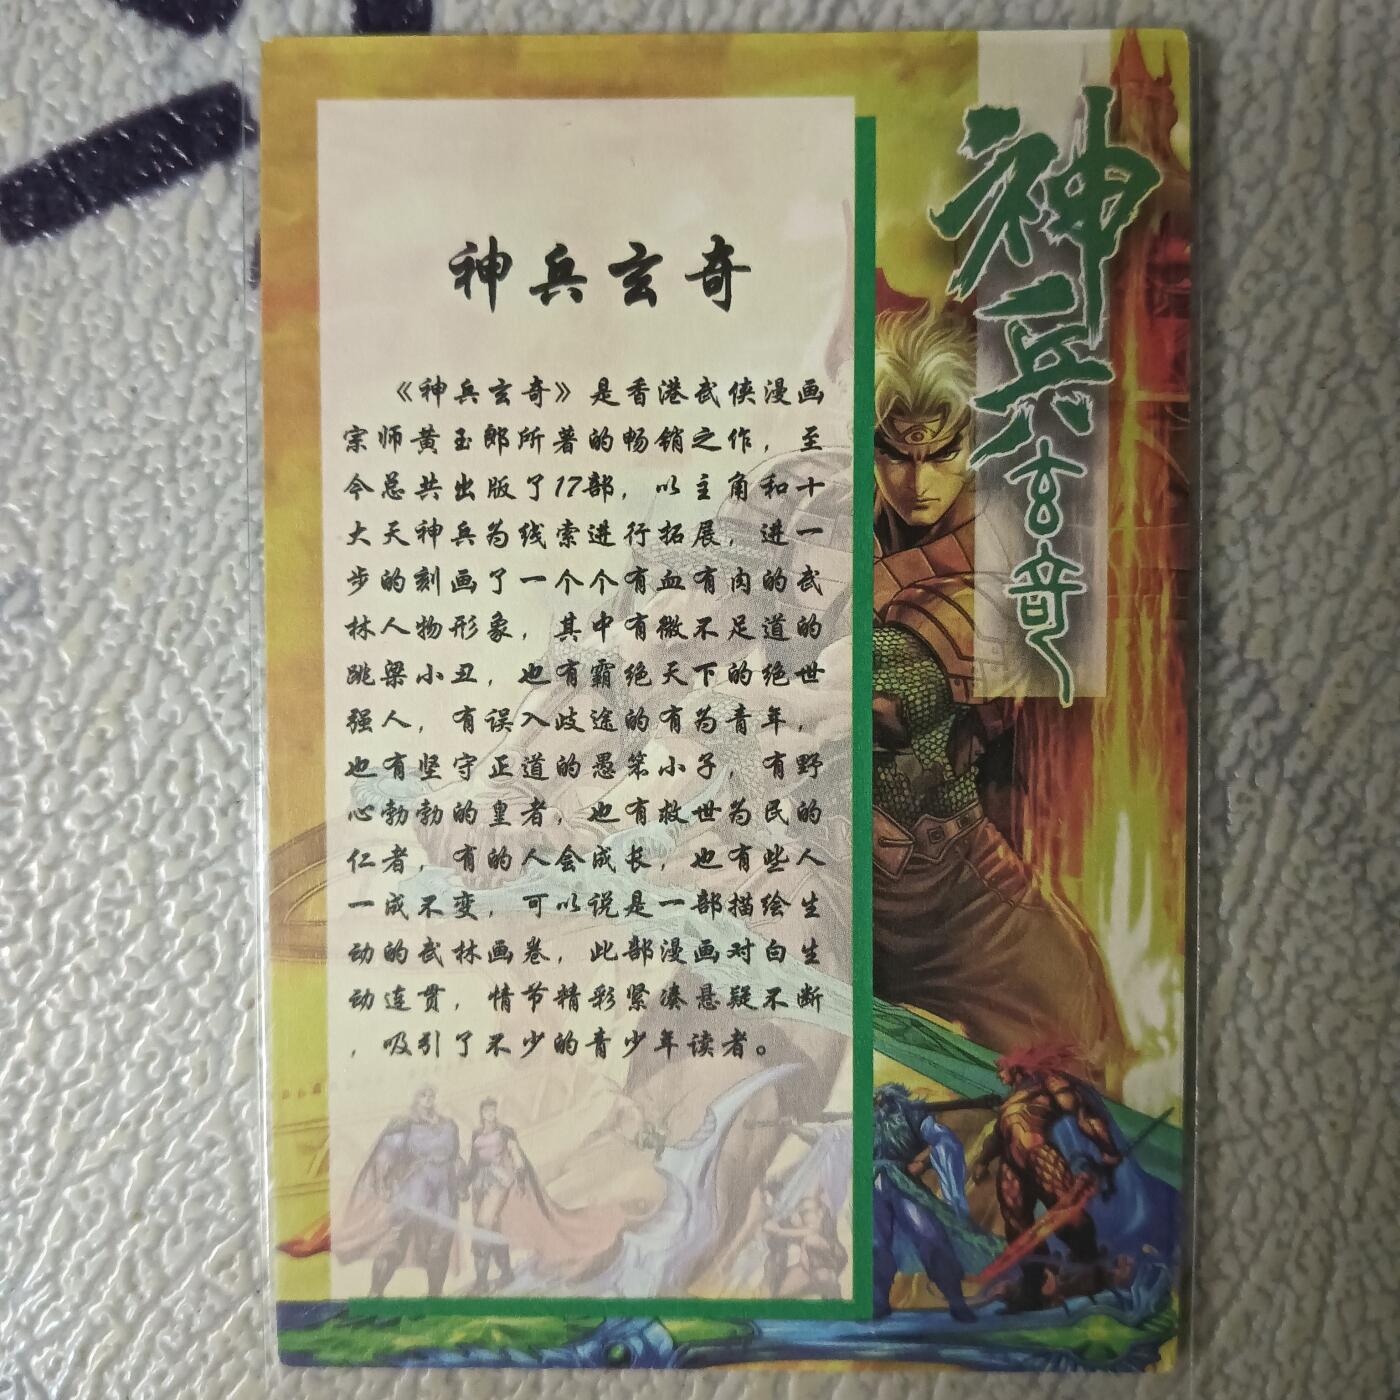 神兵玄奇
《神兵玄奇》是香港武侠漫画
宗师黄玉郎所著的畅销之作，至
今总共出版了17部，以主角和十
大天神兵为线索进行拓展，进一
步的刻画了一个个有血有肉的武
林人物形象，其中有微不足道的
跳梁小丑，也有霸绝天下的绝世
强人，有误入歧途的有为青年，
也有坚守正道的愚笨小子，有野
心勃勃的皇者，也有救世为民的
仁者，有的人会成长，也有些人
一成不变，可以说是一部描绘生
动的武林画卷，此部漫画对白生
动连贯，情节精彩紧凑悬疑不断
，吸引了不少的青少年读者。
神兵玄奇